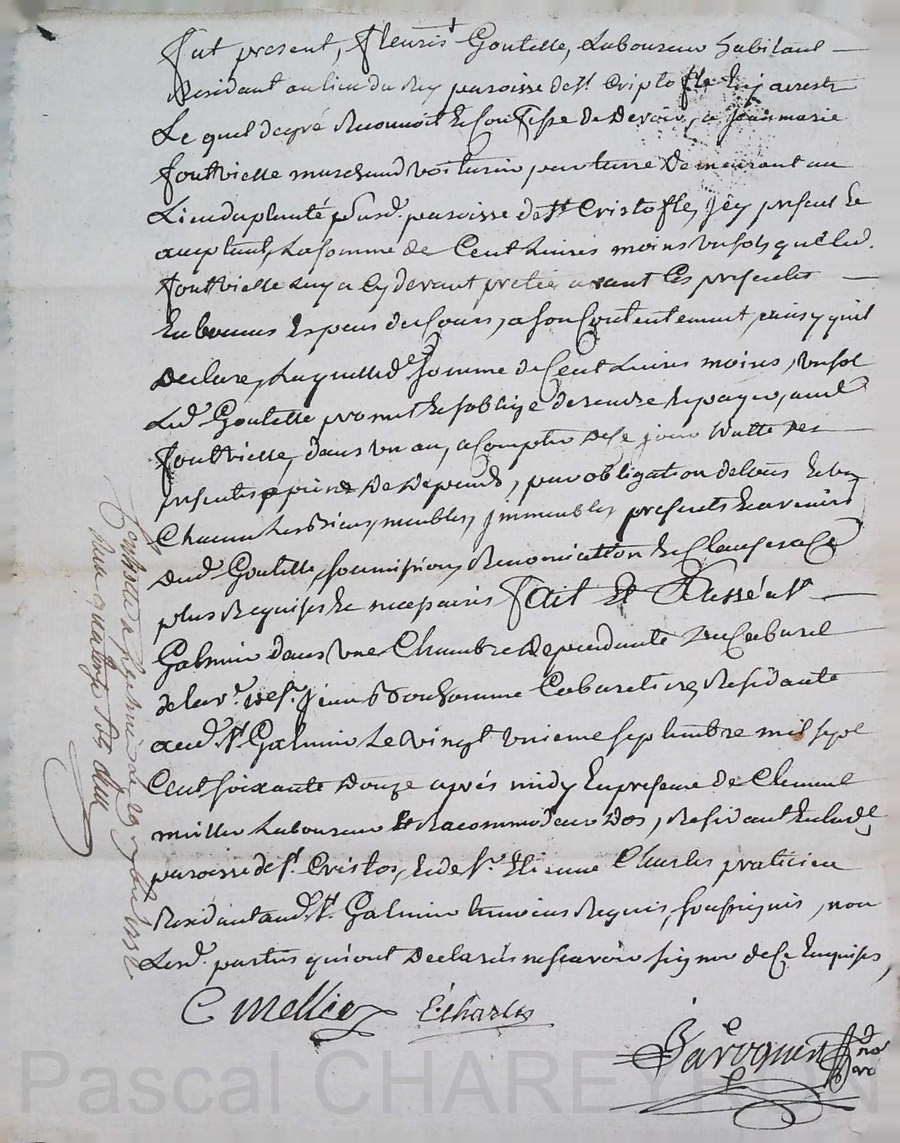 fut present, fleuris Goutelle, Laboureur habitant
Residant au lieu du Rey paroisse de St Cristofle Lachatarest
Le quel de gré Reconnoit et Confesse de Devoir, a jean marie
fontvielle marchand voiturier par terre Demeurant au
Lieu du planté susd. paroisse de St Cristofle, jcy present et
acceptant, La somme de Cent Livres moins un sols que led.
fontvielle luy a cy devant pretée avant les presentes
En bonnes Especes du Cours, a son Contentement, ainsy qu'il
Declare, Laquelle d. somme de Cent Livres moins un sol
Led. Goutelle promet et s'oblige de rendre et payer, aud.
fontvielle, dans un an, a Compter De Ce jour Datte des
presentes a peine De Depends, par obligation de tous et un
Chacun Les Biens, meubles, jmmeubles presents et avenirs
Dud. Goutelle, soumission, Renonciation et Clauses a Ce
plus Requises et necessaires fait Et Passé a St
Galmier dans une Chambre Dependante Du Cabaret
de la ve. de Sr. jean Bonhomme Cabaretiere, Residante
aud. St. Galmier Le vingt unieme septembre mil sept
Cent soixante Douze après midy En presence de Clement
mellier Laboureur Et Racommodeur Dos, Residant En lad.
paroisse de St. Cristof, Et de Sr. Etienne Charles praticien
Residant aud. St. Galmier temoins Requis, soussignés, non
Lesd. parties qui ont Declarés ne scavoir signer de Ce Enquises,
C mellier E. Charles
Controllé a St Galmier Le 29 7bre 1772
Reçu quatorze sols
Pascal CHAREYRON